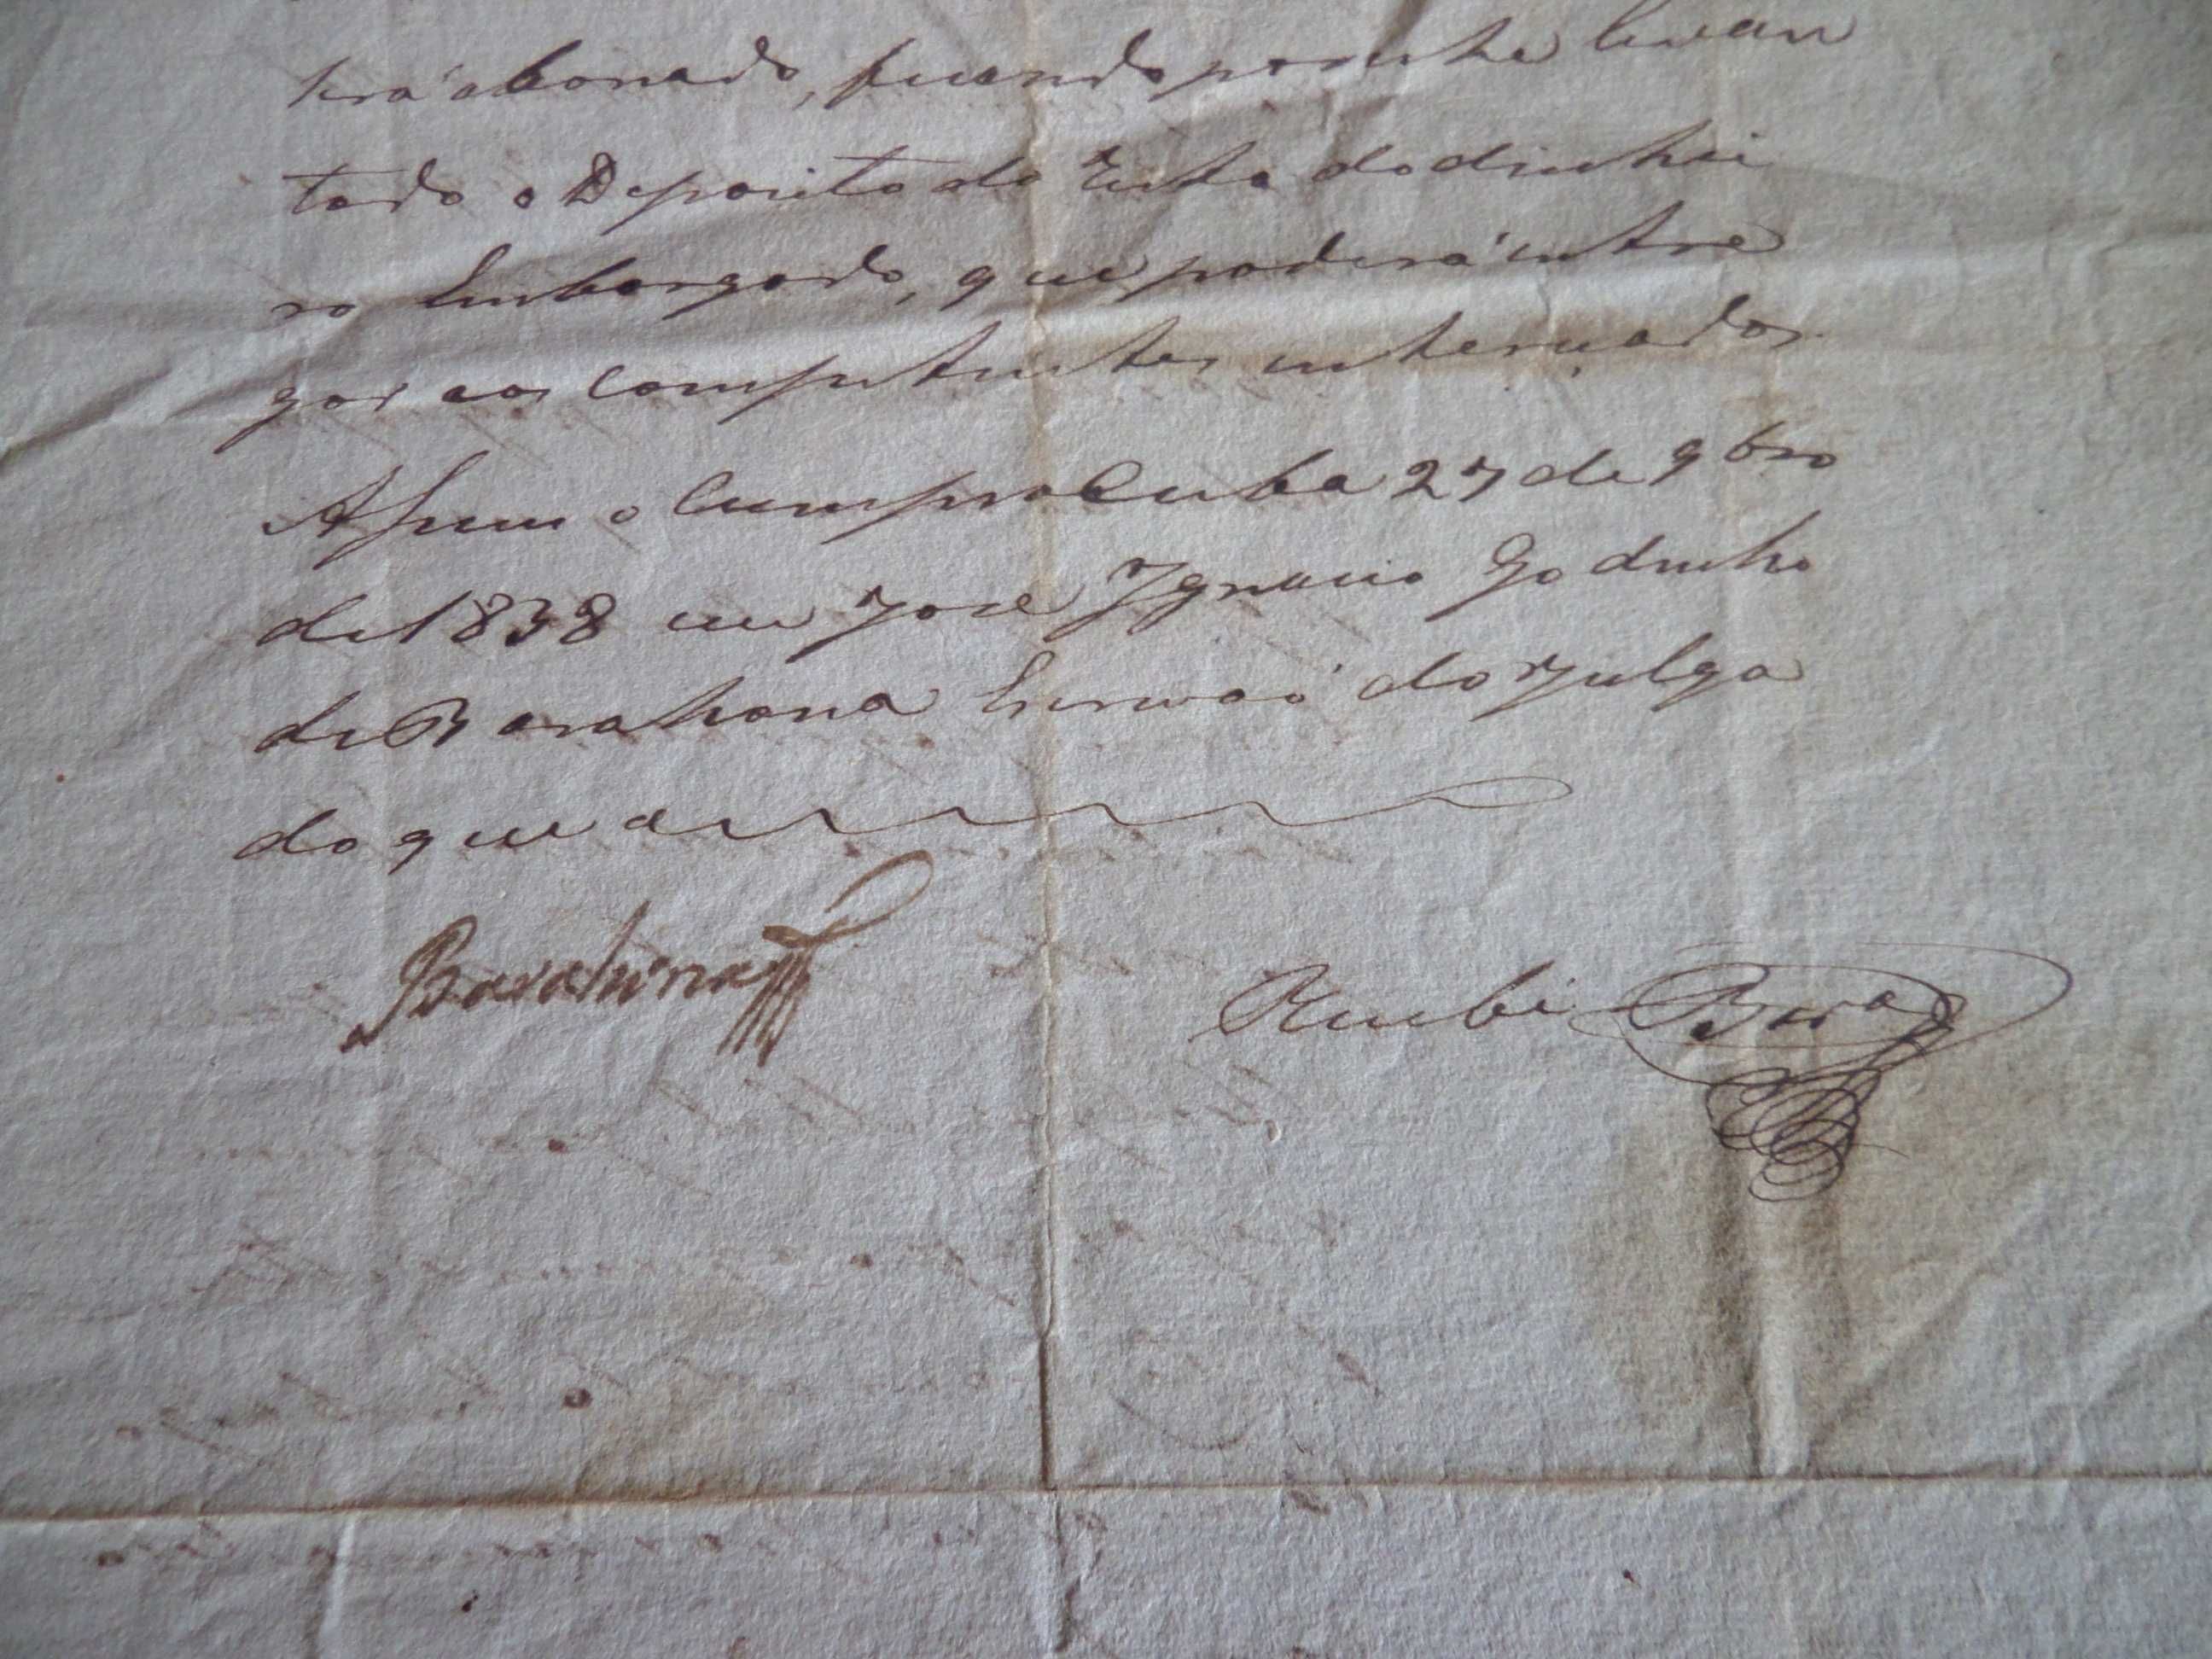 será abonado, ficando por este levan
tado o Deposito do resto do dinhei
ro Embargado, que poderá entre
gar aos Competentes interesados
Assim o Cumpra Cuba 27 de 9bro
de 1838 eu Joze Ignacio Godinho
de Barahona Escrivaõ do Julga
do que a
Barahona
Recebi Bara